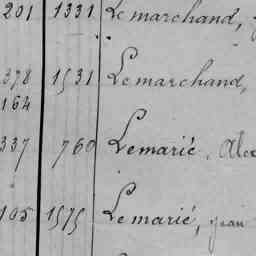 201 1331 Lemarchand,
378 1531 Lemarchand,
164
337 760 Lemarié, Alex
105 1575 Lemarié, Jean